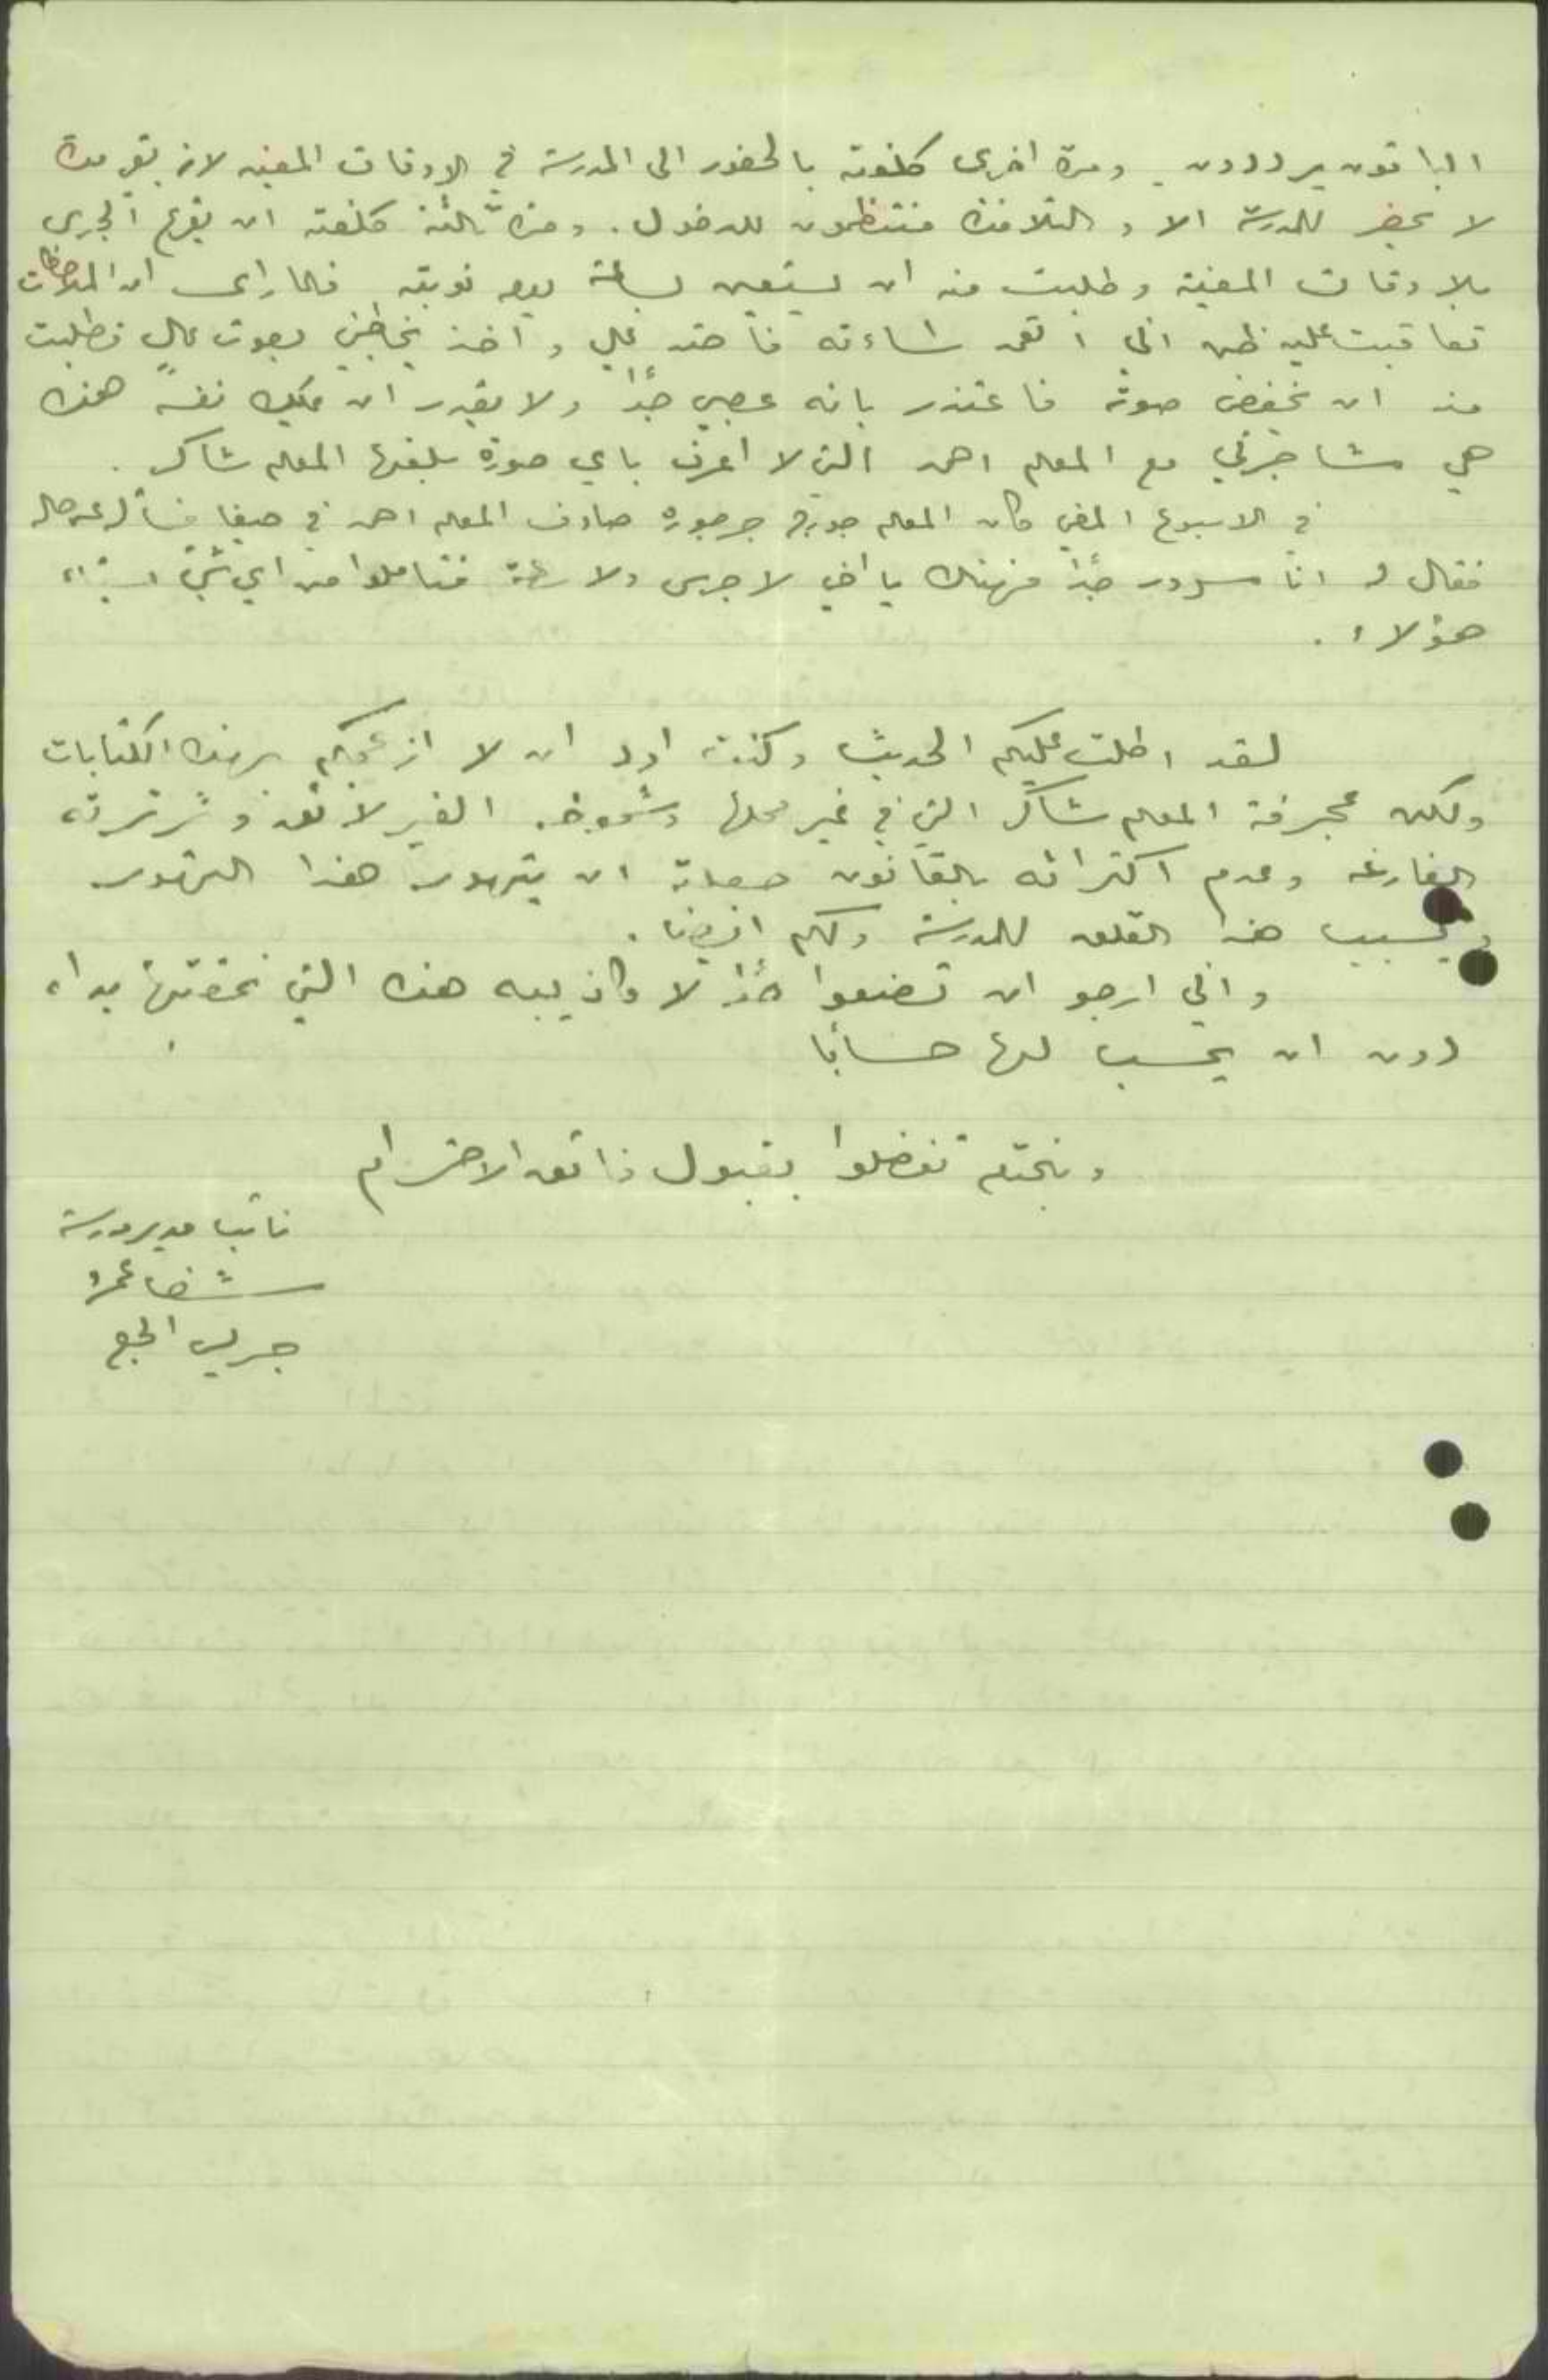 الباقون يرددون. ومرة اخرى كلفته بالحضور الى المدرسة في الاوقات المعينه لانه بقي مدة
لا يحضر للمدرسة الا و التلامذة منتظمون للدخول. ومرة ثالثة كلفته ان يقرع الجرس
بالاوقات المعينة وطلبت منه ان يستعين بساعة يوم نوبته فلما راى ان الملاحظات
تعاقبت عليه ظن اني اتعمد اساءته فاحتد علي واخذ يخاطبني بصوت عالٍ فطلبت
منه ان يخفض صوته فاعتذر بانه عصبي جداً ولا يقدر ان يملك نفسه هذه
هي مشاجرتي مع المعلم احمد التي لا اعرف باي صورة بلغها المعلم شاكر.
في الاسبوع المضي كان المعلم جورج جرجوره صادف المعلم احمد في حيفا فسأله عن حاله
فقال له انا مسرور جداً فهناك يا اخي لا جرس ولا ساعة فتاملوا من اي شيء يستاء
هؤلاء.
لقد اطلت عليكم الحديث وكنت اود ان لا ازعجكم بهذه الكتابات
ولكن عجرفة المعلم شاكر التي في غير محلها وشموخه الغير لائق وثرثرته
الفارغه وعدم اكتراثه بالقانون جعلته ان يتهور هذا التهور
ويسبب هذا القلق للمدرسة ولكم ايضا.
واني ارجو ان تضعوا حداً لا كاذيبه هذه التي تختلقها يداه
دون ان يحسب لها حسابًا
ونختم تفضلوا بقبول فائق الاحترام
نائب مدير مدرسة
شفاعمرو
جريس الجمع